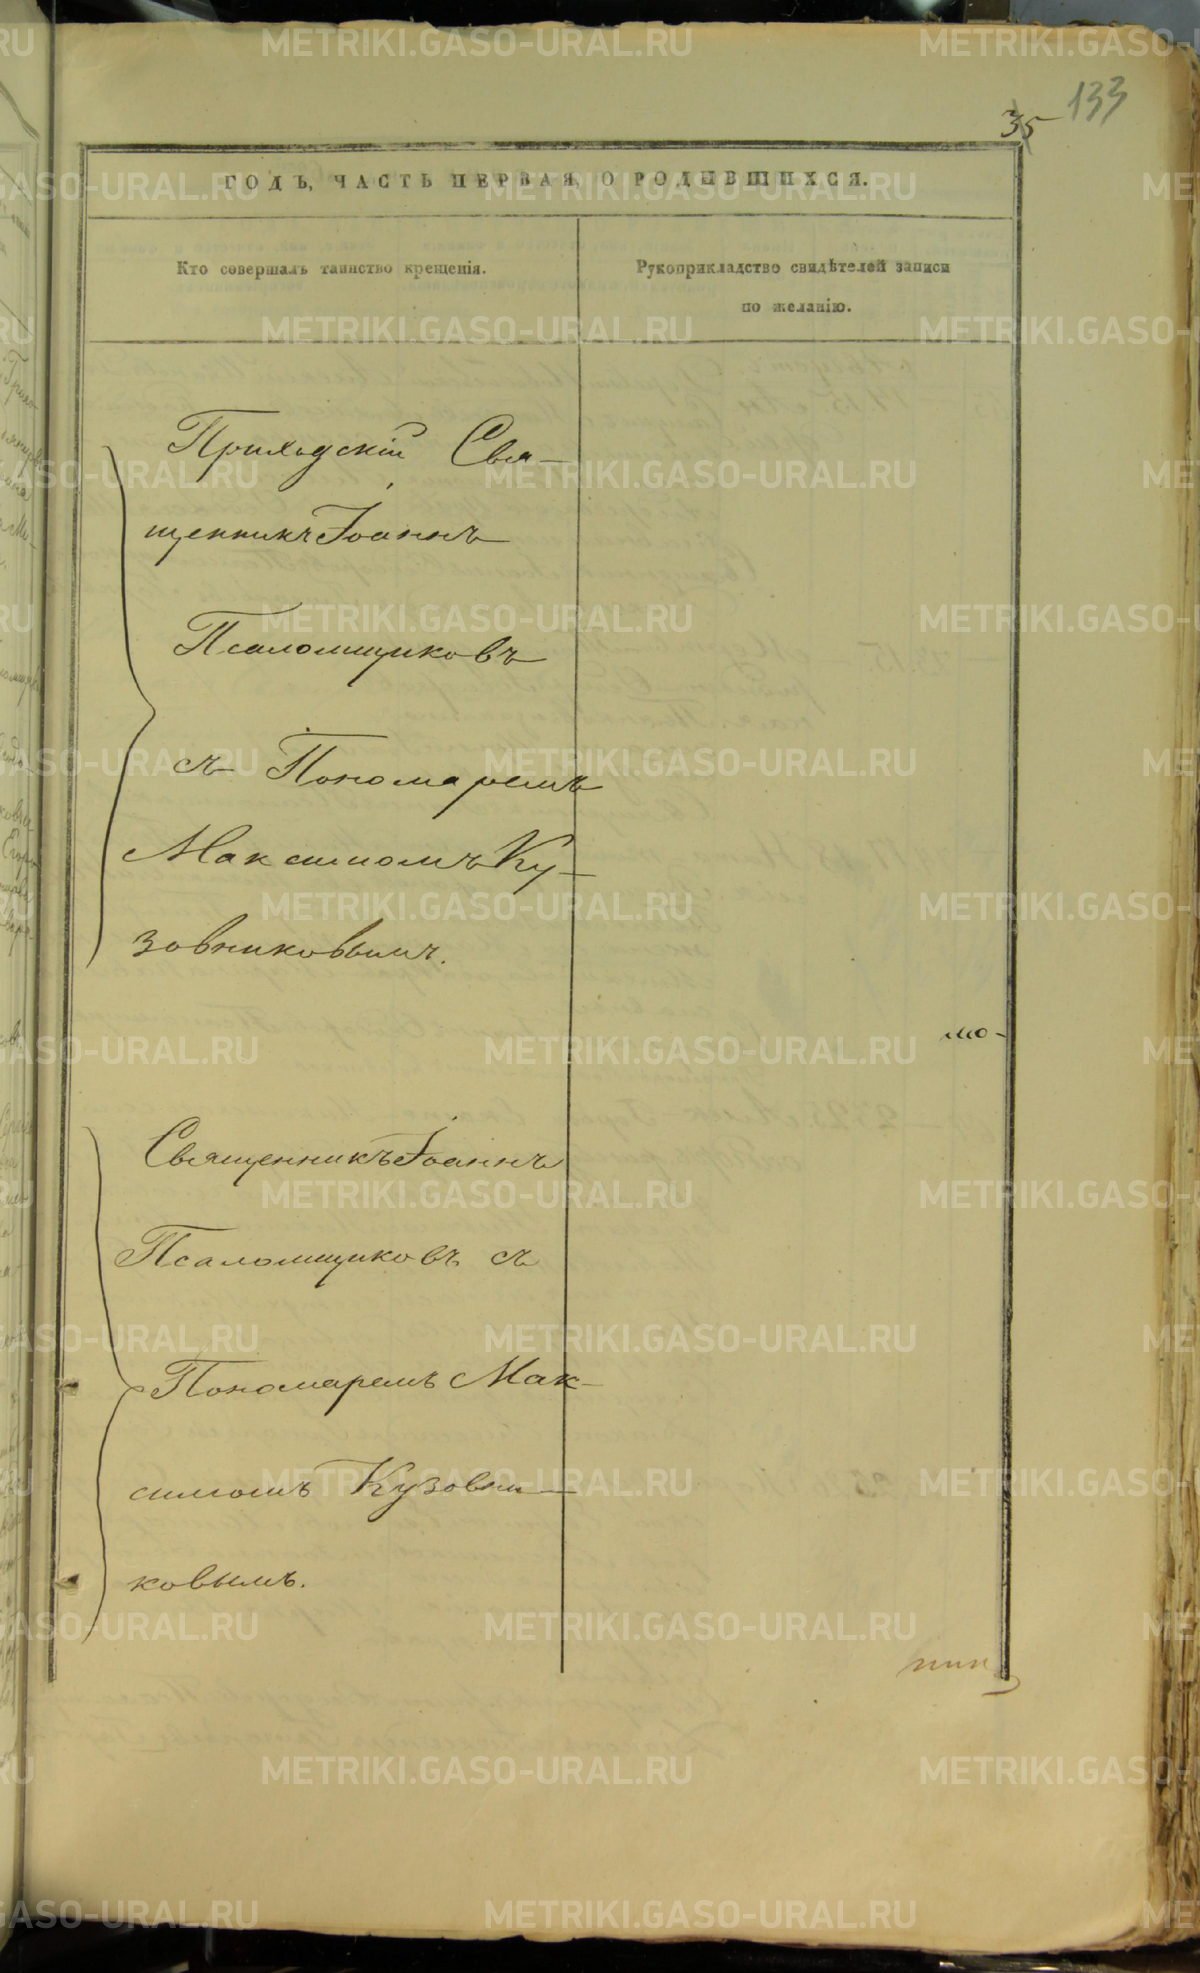 133
35
ГОДЪ, ЧАСТЬ ПЕРВАЯ, О РОДИВШИХСЯ.
Кто совершалъ таинство крещенія.
Рукоприкладство свидѣтелей записи
по желанію.
Приходскій Свя-
щенникъ Іоаннъ
Псаломщиковъ
съ Пономаремъ
Максимомъ Ку-
зовниковымъ.
Священникъ Іоаннъ
Псаломщиковъ съ
Пономаремъ Мак-
симомъ Кузовни-
ковымъ.
METRIKI.GASO-URAL.RU